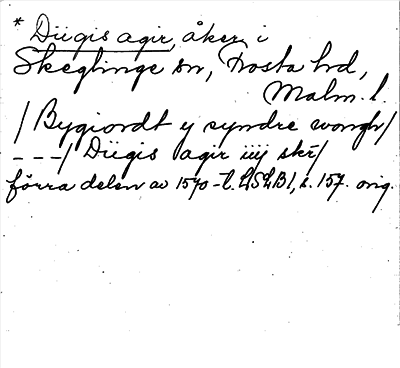 * Diigis agir, åker i
Skeglinge sn, Frosta hd,
Malm. l.
/ Bygiordt y syndre wongh/
---/ Diigis agir iiij skr/
förra delen av 1570-t. LSLB1, s. 157. orig.